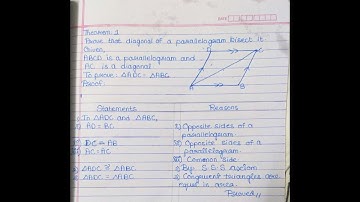 DATE
Theorem 1
Prove that diagonal of a parallelogram bisect is
Given,
ABCD is a parallelogram and
AC is a diagonal
To prove: △ADC = △ABC
Proof:
D
C
A
B
Statements
Reasons
In △ADC and △ABC,
i) AD = BC
i) Opposite sides of a
parallelogram
ii) DC = AB
ii) Opposite sides of a
parallelogram
iii) AC = AC
iii) Common side
2) △ADC ≅ △ABC
2) By S.S.S axiom
3) △ADC = △ABC
3) Congruent triangles are
equal in area
Proved,,